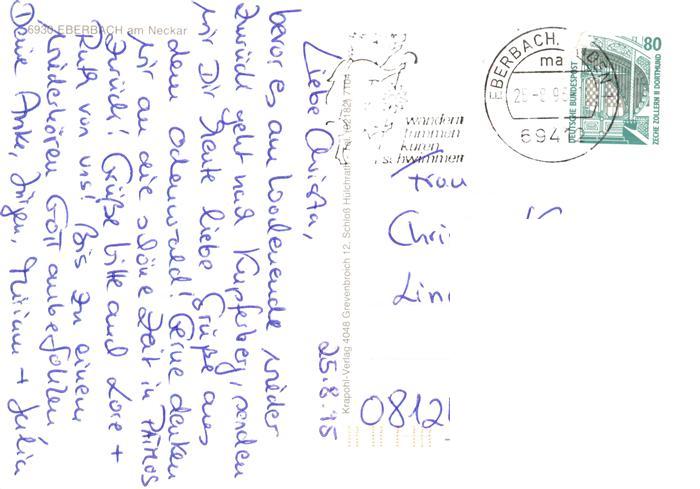 6930 EBERBACH am Neckar
25.8.95
Liebe Christa,
bevor es am Wochenende wieder
zurück geht nach Kupferberg, senden
wir Dir heute liebe Grüße aus
dem Odenwald! Gerne denken
wir an die schöne Zeit in PATMOS
zurück! Grüße bitte auch Lore +
Ruth von uns! Bis zu einem
Wiederhören Gott anbefohlen
Deine Anke, Jürgen, Miriam + Julia
Krapohl-Verlag 4048 Grevenbroich 12, Schloß Hülchrath, Tel. (02182) 7104
wandern
kuren
schwimmen
EBERBACH, BADEN
ma
25-8.9
694 2
80
DEUTSCHE BUNDESPOST
ZECHE ZOLLERN II DORTMUND
Frau
Chri
Lin
0812